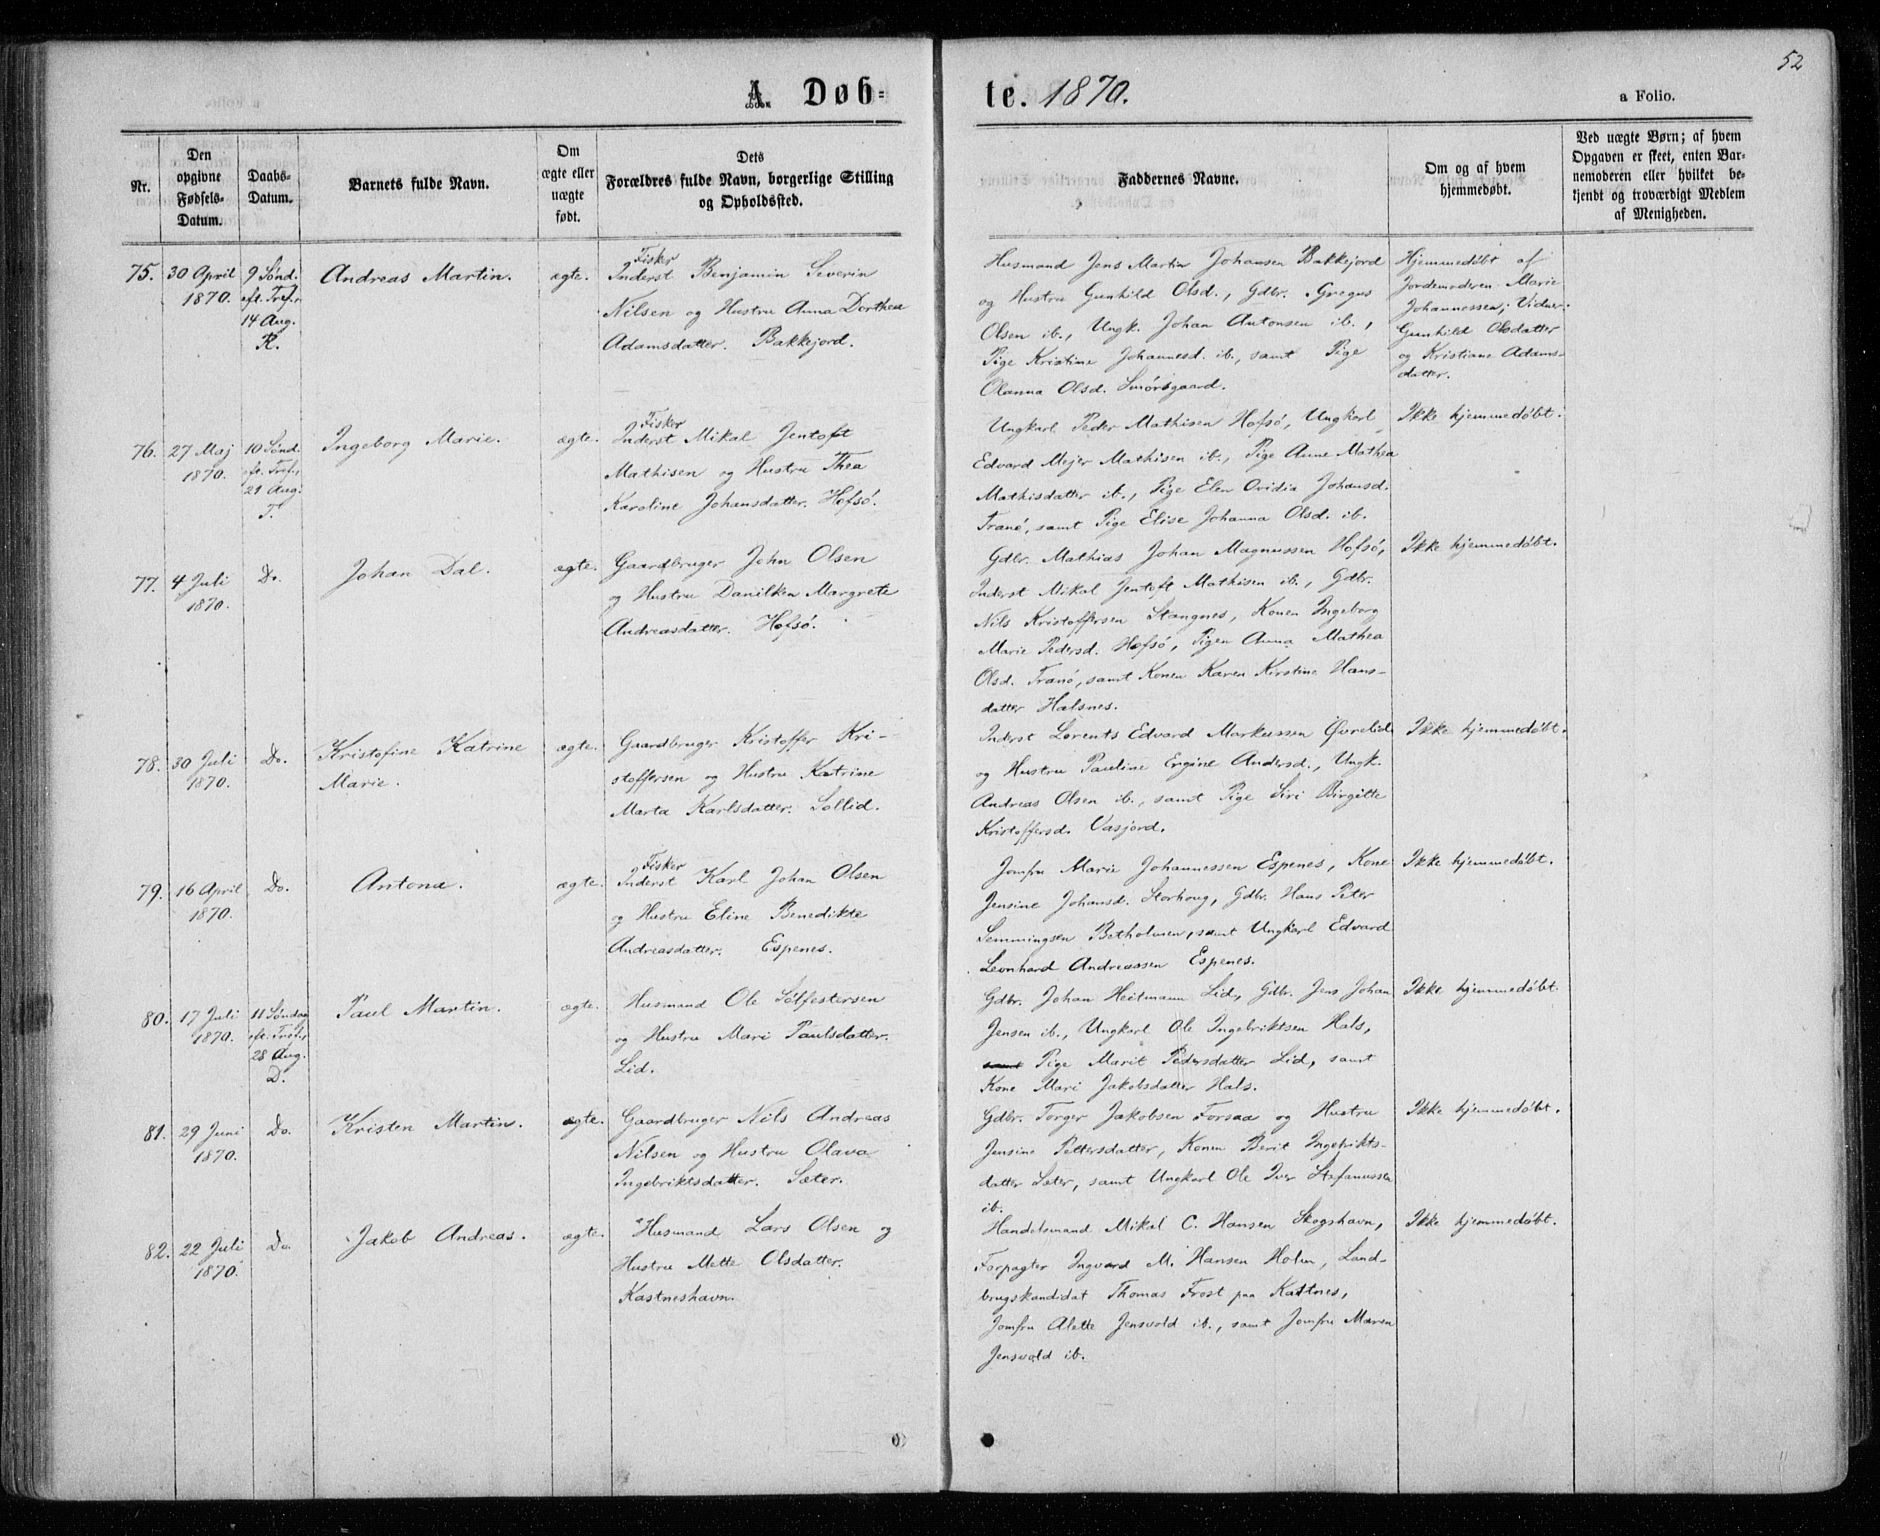 52
A. Døb-
te. 1870.
a Folio.
Nr.
Den opgivne Fødsels-Datum.
Daabs-Datum.
Barnets fulde Navn.
Om ægte eller uægte født.
Dets Forældres fulde Navn, borgerlige Stilling og Opholdssted.
Faddernes Navne.
Om og af hvem hjemmedøbt.
Ved uægte Børn; af hvem Opgaven er skeet, enten Barnemoderen eller hvilket bekjendt og troværdigt Medlem af Menigheden.
75.
30 April
1870.
9 Sønd.
eft. Tref.,
14 Aug.
K.
Andreas Martin.
ægte.
Fisker
Inderst Benjamin Severin
Nilsen og Hustru Anna Dorthea
Adamsdatter. Bakkejord.
Husmand Jens Martin Johansen Bakkejord
og Hustru Gunhild Olsd., Gdbr. Gregus
Olsen ib., Ungk. Johan Antonsen ib.,
Pige Kristine Johannesd. ib., samt Pige
Olanna Olsd. Smörsgaard.
Hjemmedøbt af
Jordemoderen Marie
Johannessen; Vidner:
Gunhild Olsdatter
og Kristiane Adams-
datter.
76.
27 Maj
1870.
10 Sønd.
eft. Tref.,
21 Aug.
T.
Ingeborg Marie.
ægte.
Fisker
Inderst Mikal Jentoft
Mathisen og Hustru Thea
Karoline Johansdatter. Hofsö.
Ungkarl Peder Mathisen Hofsö, Ungkarl
Edvard Mejer Mathisen ib., Pige Anne Mathea
Mathisdatter ib., Pige Elen Ovidia Johansd.
Tranö, samt Pige Elise Johanna Olsd. ib.
Ikke hjemmedøbt.
77.
4 Juli
1870.
Do.
Johan Dal.
ægte.
Gaardbruger John Olsen
og Hustru Danilken Margrete
Andreasdatter. Hofsö.
Gdbr. Mathias Johan Magnussen Hofsö,
Inderst Mikal Jentoft Mathisen ib., Gdbr.
Nils Kristoffersen Stangnes, Konen Ingeborg
Marie Pedersd. Hofsö, Pigen Anna Mathea
Olsd. Tranö, samt Konen Karen Kirstine Hans-
datter Halsnes.
Ikke hjemmedøbt.
78.
30 Juli
1870.
Do.
Kristofine Katrine
Marie.
ægte.
Gaardbruger Kristoffer Kri-
stoffersen og Hustru Katrine
Marta Karlsdatter. Sollid.
Inderst Lorents Edvard Markussen Øvrelid
og Hustru Pauline Ergine Andersd., Ungk.
Andreas Olsen ib., samt Pige Siri Birgitte
Kristoffersd. Vasjord.
Ikke hjemmedøbt.
79.
16 April
1870.
Do.
Antona.
ægte.
Fisker
Inderst Karl Johan Olsen
og Hustru Eline Benedikte
Andreasdatter. Espenes.
Jomfru Marie Johannessen Espenes, Kone
Jensine Johansd. Storhoug, Gdbr. Hans Peter
Lemmingsen Betholmen, samt Ungkarl Edvard
Leonhard Andreassen Espenes.
Ikke hjemmedøbt.
80.
17 Juli
1870.
11 Søndag
eft. Tref.,
28 Aug.
D.
Paul Martin.
ægte.
Husmand Ole Sölfestersen
og Hustru Mari Paulsdatter.
Lid.
Gdbr. Johan Heitmann Lid, Gdbr. Jens Johan
Jensen ib., Ungkarl Ole Ingebriktsen Hals,
samt Pige Marit Pedersdatter Lid, samt
Kone Mari Jakobsdatter Hals.
Ikke hjemmedøbt.
81.
29 Juni
1870.
Do.
Kristen Martin.
ægte.
Gaardbruger Nils Andreas
Nilsen og Hustru Olava
Ingebriktsdatter. Sæter.
Gdbr. Torger Jakobsen Forsaa og Hustru
Jensine Pettersdatter, Konen Berit Ingebrikts-
datter Sæter, samt Ungkarl Ole Iver Stefanussen
ib.
Ikke hjemmedøbt.
82.
22 Juli
1870.
Do.
Jakob Andreas.
ægte.
Husmand Lars Olsen og
Hustru Mette Olsdatter.
Kastneshavn.
Handelsmand Mikal C. Hansen Skogshavn,
Forpagter Ingvard M. Hansen Holm, Land-
brugskandidat Thomas Frost paa Kastnes,
Jomfru Alette Jensvold ib., samt Jomfru Maren
Jensvold ib.
Ikke hjemmedøbt.